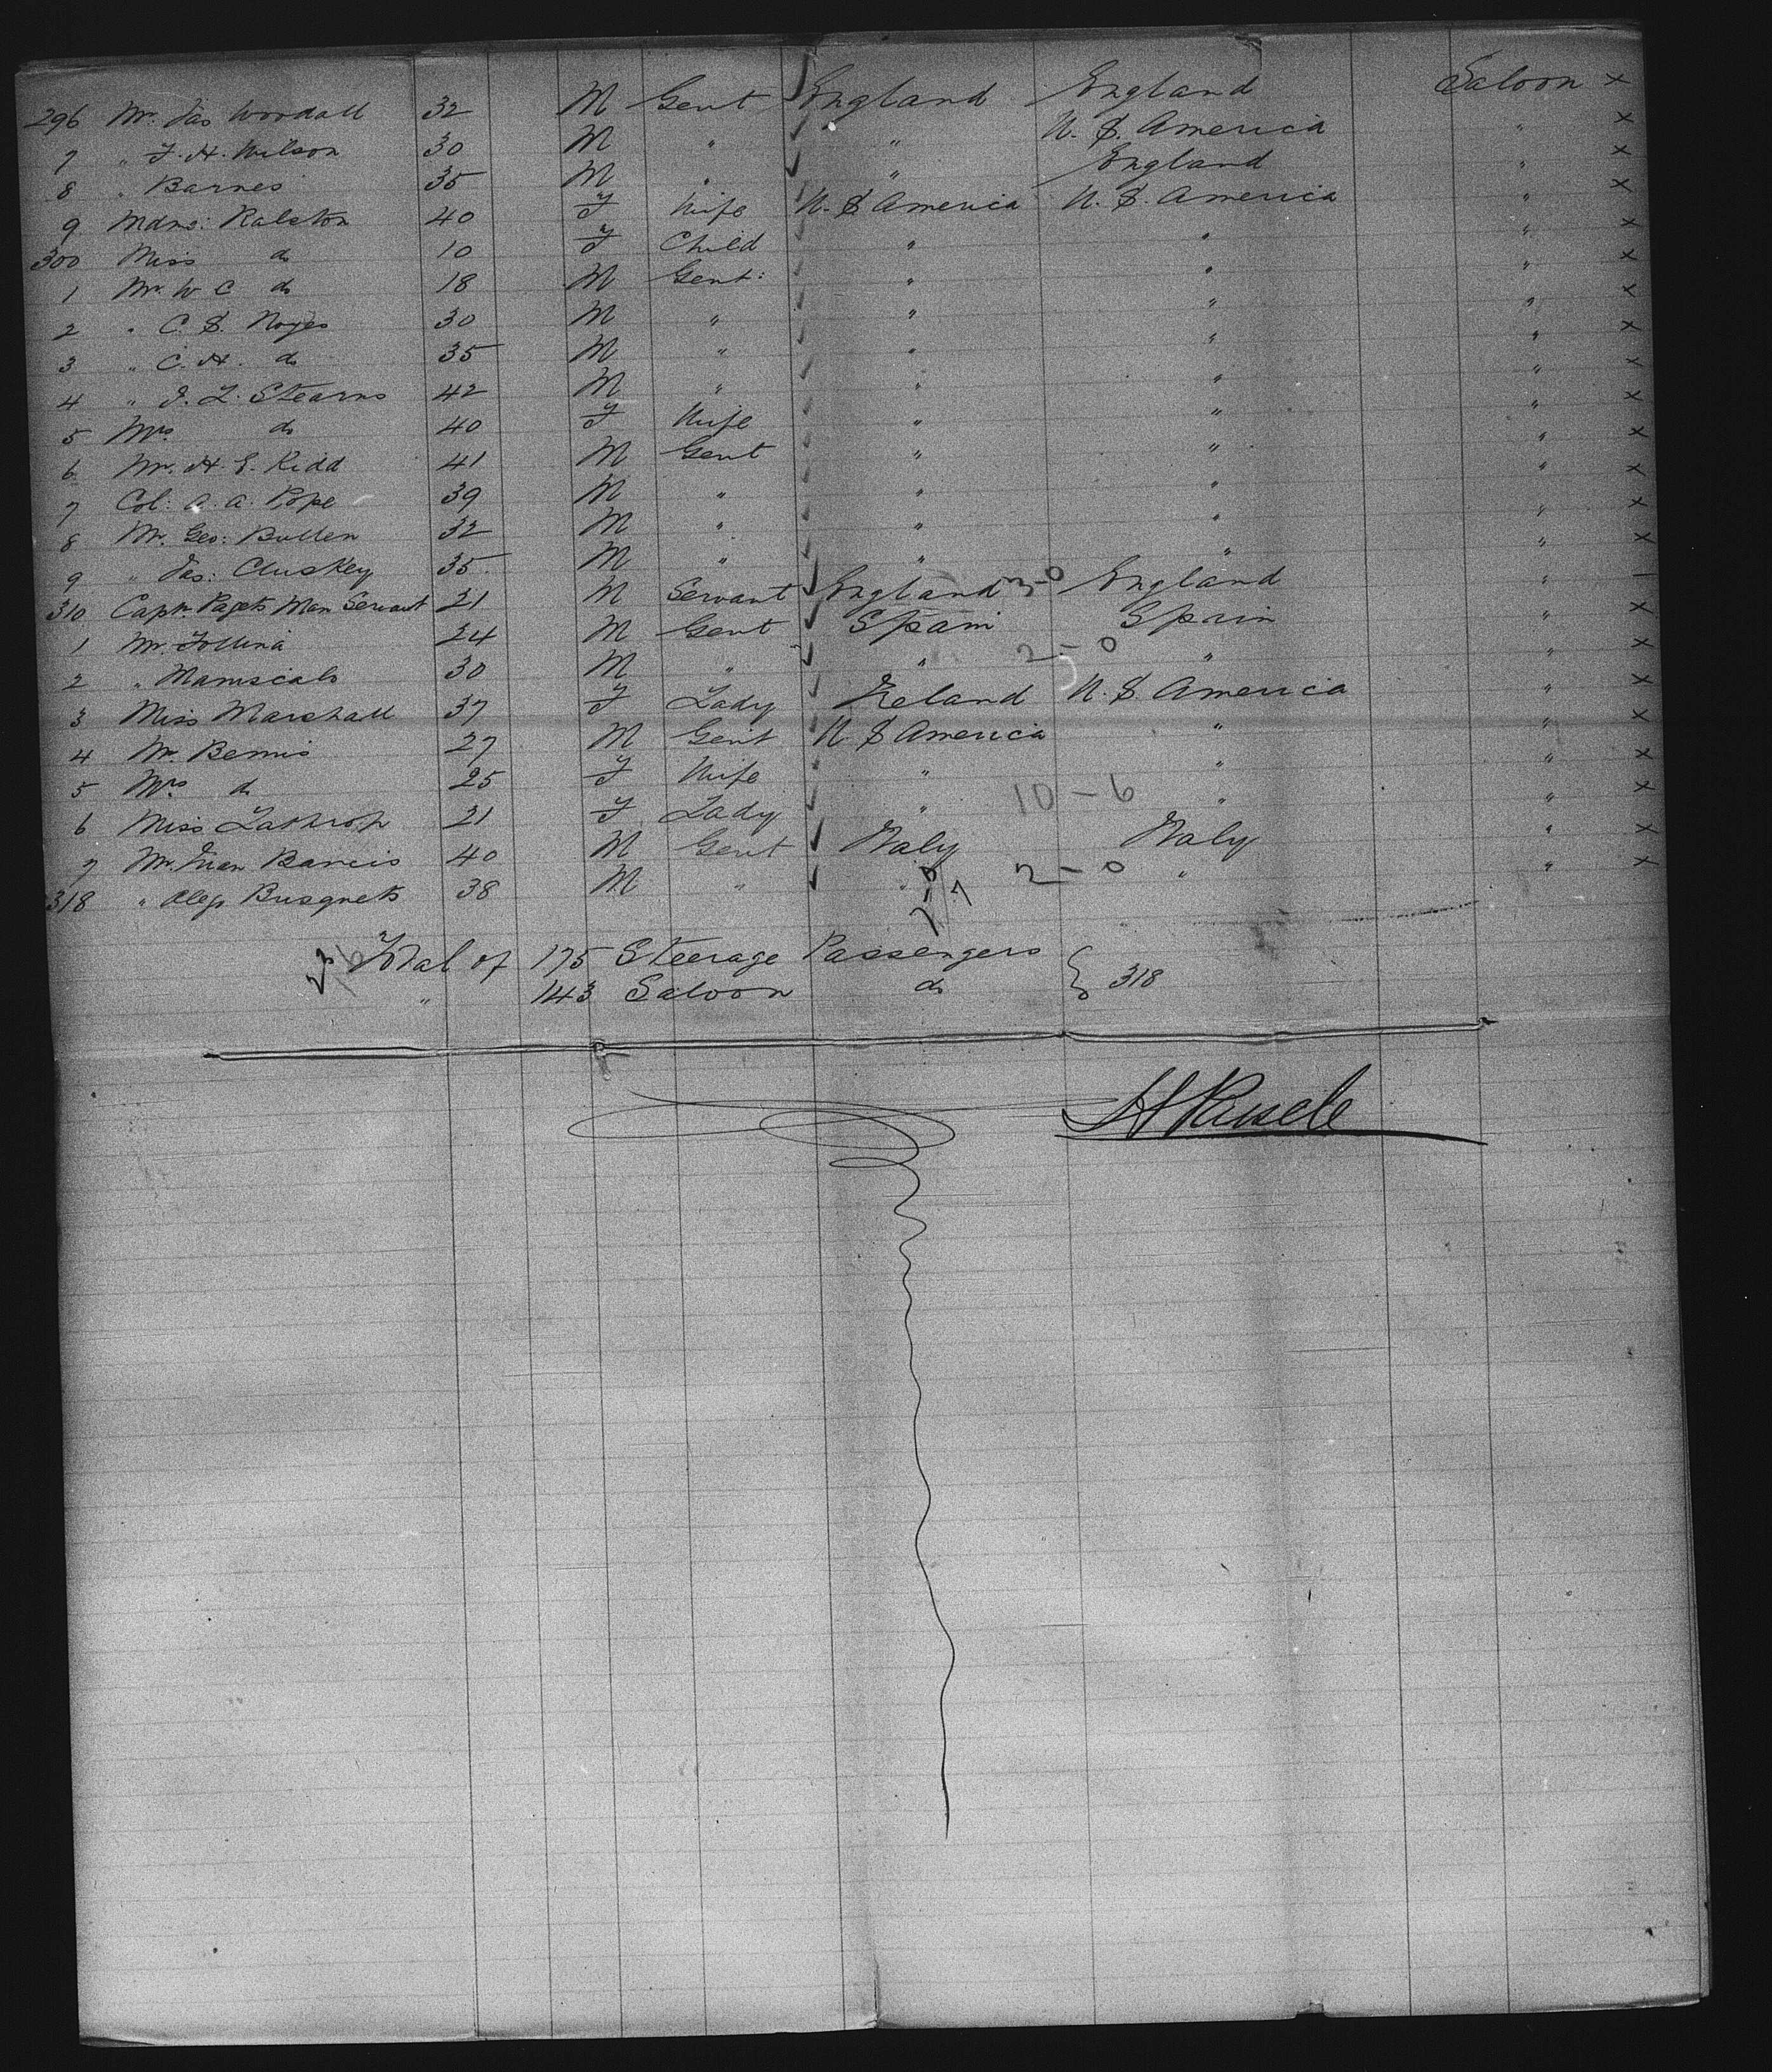 296 Mr. Jas Woodall 32 M Gent England England Saloon x
7 " F. H. Wilson 30 M " " U. S. America " x
8 " Barnes 35 M " " England " x
9 Mdme: Ralston 40 F Wife U. S America U. S. America " x
300 Miss do 10 F Child " " " x
1 Mr. W C do 18 M Gent: " " " x
2 " C. S. Noyes 30 M " " " " x
3 " C. H. do 35 M " " " " x
4 " J. L. Stearns 42 M " " " " x
5 Mrs do 40 F Wife " " " x
6 Mr. H. E. Kidd 41 M Gent " " " x
7 Col: A. A. Pope 39 M " " " " x
8 Mr. Geo: Bullen 32 M " " " " x
9 " Jas: Cluskey 35 M " " " " x
310 Capt. Pagets Man Servant 21 M Servant England 3-0 England " -
1 Mr. 24 M Gent Spain Spain " x
2 " 30 M " " 2-0 " " x
3 Miss Marshall 37 F Lady Ireland U. S. America " x
4 Mr. Bemis 27 M Gent U S America " " x
5 Mrs do 25 F Wife " " " x
6 Miss Lathrop 21 F Lady " 10-6 " " x
7 Mr. Juan 40 M Gent Italy Italy " x
318 " Busquets 38 M " " 2-0 " " x
Total of 175 Steerage Passengers
" 143 Saloon do } 318